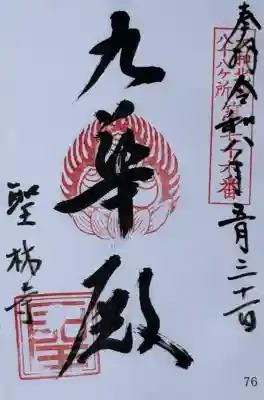 奉拝 令和八年五月三十一日
八十八ヶ所第七十六番
九華殿
聖林寺
76